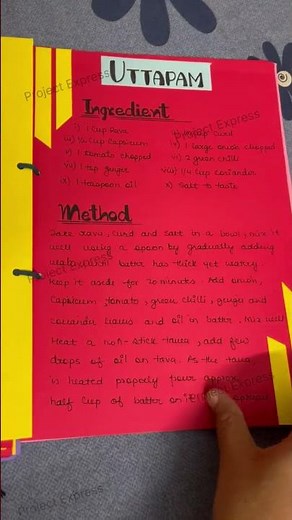 UTTAPAM
Ingredient
i) 1 Cup Rava
ii) Curd
iii) ¼ Cup Capsicum
iv) 1 Large onion chopped
v) 1 tomato chopped
vi) 2 green chilli
vii) 1 tsp ginger
viii) 1/4 cup coriander
ix) 1 teaspoon oil
x) Salt to taste
Method
Take rava, curd and salt in a bowl, mix it
well using a spoon by gradually adding
water batter has thick yet
keep it aside for 20 minutes. Add onion,
Capsicum tomato, green chilli, ginger and
coriander leaves and oil in batter, Mix well
Heat a non-stick tawa, add few
drops of oil on tava. As the tawa
is heated properly pour
half cup of batter on
Project Express
Project Express
Project Express
Project Express
Project Express